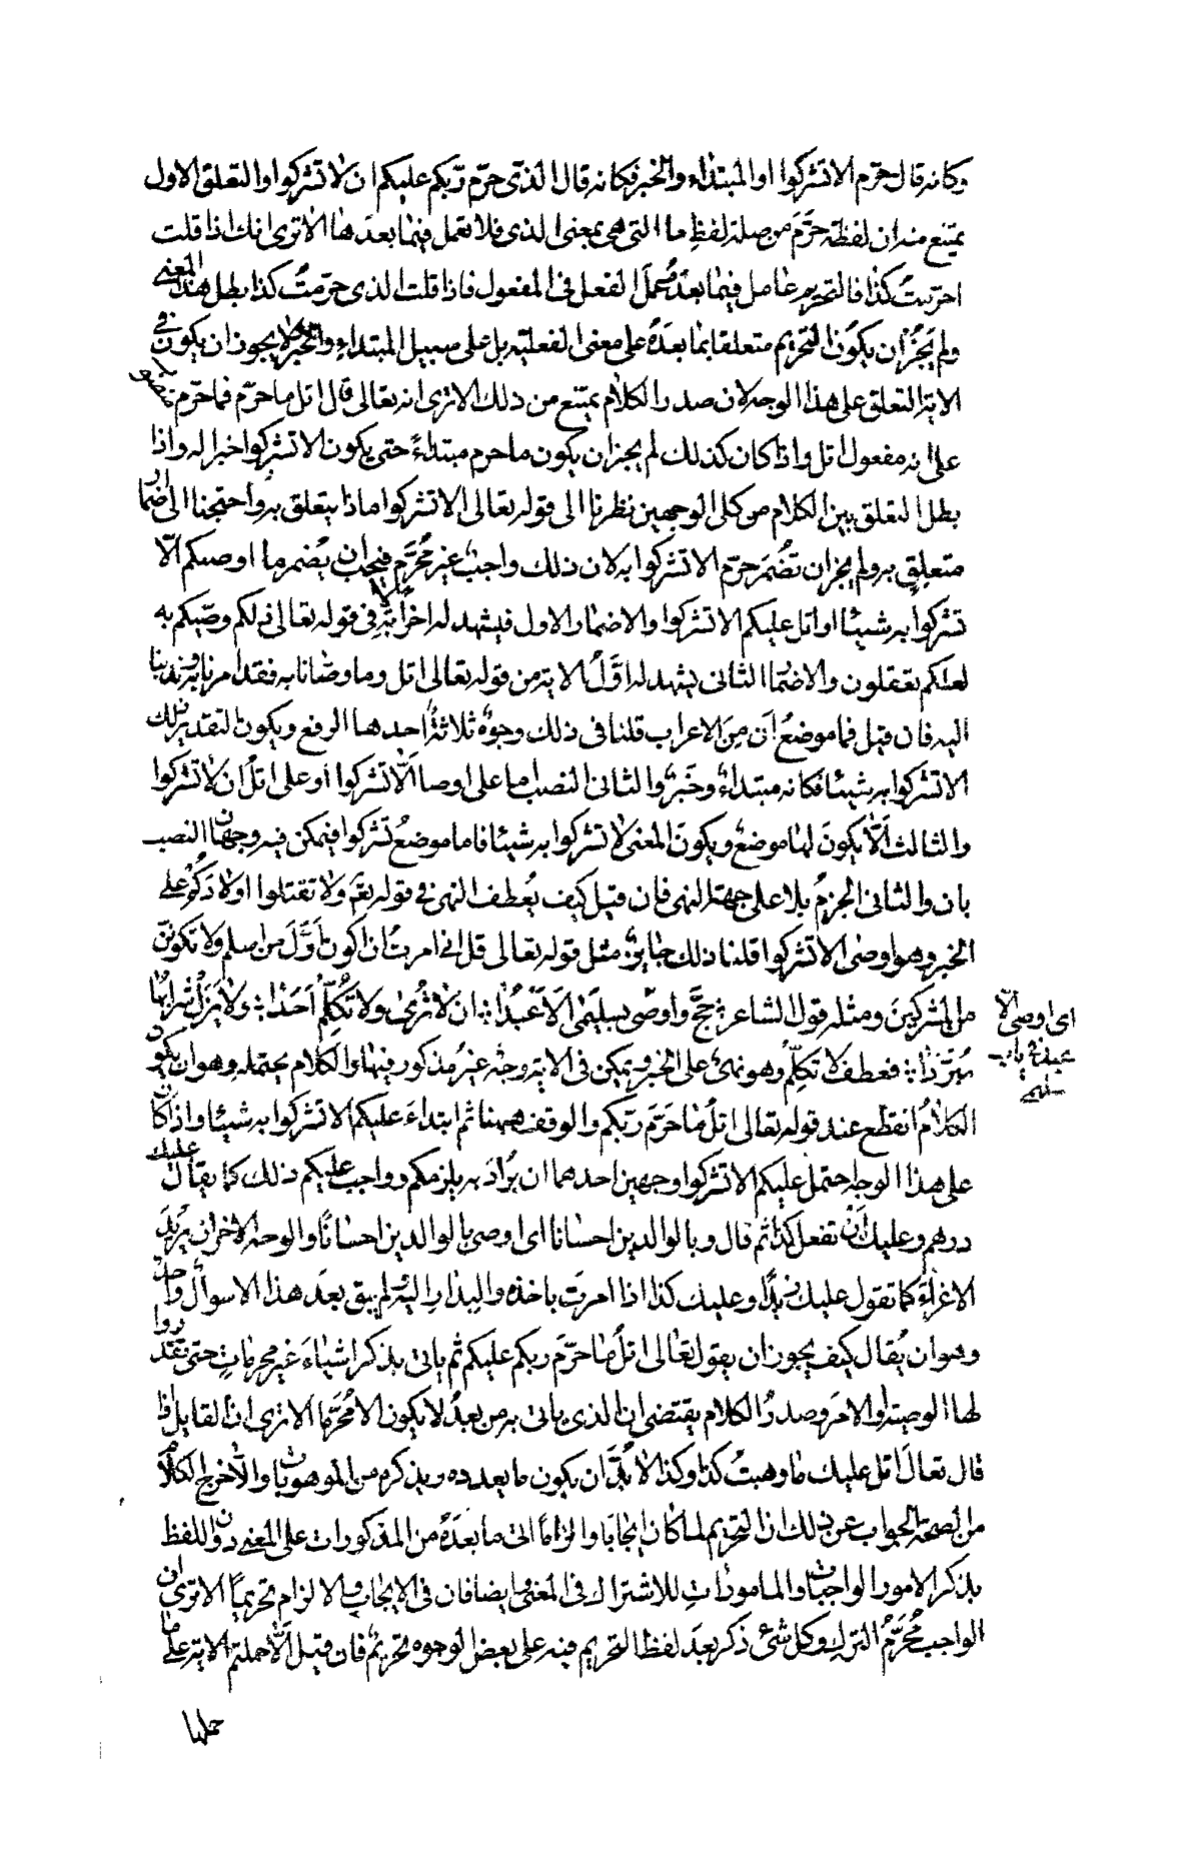 وكانه قال حرّم الا تشركوا او المبتداء والخبر فكانه قال الذى حرّم ربّكم عليكم ان لا تشركوا والتعلق الاول
يمتنع منه ان لفظة حَرَّمَ من صلة لفظِ ما التى هى بمعنى الذى فلا تعمل فيما بعدَها الا ترى انك اذا قلت
حرّمتُ كذا فالتحريم عامل فيما بعدهُ عملَ الفعل فى المفعول فاذا قلت الذى حرّمتُ كذا بطل هذا المعنى
ولم يَجُزْ ان يكونَ التحريم متعلقا بما بعدَهُ على معنى الفعلية بل على سبيل المبتداءِ والخبر ولا يجوز ان يكون فى
الاية التعلق على هذا الوجه لان صدر الكلام يمتنع من ذلك الا ترى انه تعالى قال اتل ما حرّم فما حرّم منصوب
على انه مفعول اتل واذا كان كذلك لم يجز ان يكون ما حرم مبتداءً حتى يكون الا تشركوا خبرا له واذا
بطل التعلق بين الكلام من كلى الوجهين نظرنا الى قوله تعالى الا تشركوا ماذا يتعلق به واحتجنا الى اضمار
متعلِقٍ به ولم يجز ان تُضمَر حرّم الا تشركوا به لان ذلك واجبٌ غيرُ مُحرَّم فيجب ان يُضمر ما اوصيكم الّا
تشركوا به شيئا او اتل عليكم الا تشركوا والاضمار الاول فيشهد له اخرُ الاية فى قوله تعالى ذلكم وصّيكم به
لعلكم تعقلون والاضمار الثانى يشهد له اوّلُ الاية من قوله تعالى اتل وما وصّانا به فقد امرنا به وندبنا
اليه فان قيل فما موضعُ اَن مِنَ الاعراب قلنا فى ذلك وجوهٌ ثلاثةٌ احدها الرفع ويكون التقدير ذلك
الا تشركوا به شيئا فكانه مبتداءٌ وخَبَرٌ والثانى النصب اما على اوصا الّا تشركوا او على اتلُ ان لا تشركوا
والثالث اَلّا يكونَ لها موضعٌ ويكونَ المعنى لا تشركوا به شيئا فاما موضعُ تشركوا فيمكن فيه وجهان النصب
بان والثانى الجزمُ بلا على جهة النهى فان قيل كيف يُعطف النهى فى قوله تع ولا تقتلوا اولادَكُمْ على
الخبر وهو اوصى الا تشركوا قلنا ذلك جايزٌ مثل قوله تعالى قل انى امرتُ ان اكون اَوَّلَ من اسلم ولا تكوننّ
من المشركينَ ومثله قول الشاعر حجَّ واوصَى بسليمَى الاَعْبُدَا ان لا تُرَى ولا تُكلِّمْ اَحَدًا ولا يَزَلْ شرابُها
مُبَرَّدَا فعطف لا تكلِّمْ وهو نهىٌ على الخبر ويمكن فى الاية وجهٌ غيرُ مذكور فيها والكلام يحتمله وهو ان يكون
الكلامُ انقطع عند قوله تعالى اتلُ ما حَرَّمَ رَبّكم والوقف ههنا ثم ابتداءَ عليكم الا تشركوا به شيئا واذا كان
على هذا الوجه احتمل عليكم الا تشركوا وجهين احدهما ان يُرادَ به يلزمكم وواجب عليكم ذلك كما يقال عليك
درهم وعليك اَنْ تفعل كذا ثم قال وبالوالدين احسانا اى اوصى بالوالدين احسانًا والوجه الاخر ان يُريدَ
الاغراءَ كما تقول عليك زيدًا وعليك كذا اذا امرتَ باخذه والبدارِ اليه لم يبق بعدَ هذا الا سوالٌ واحدٌ
وهو ان يُقال كيف يجوز ان يقول تعالى اتلُ ما حرّم ربكم عليكم ثم ياتى بذكر اشياءَ غير محرماتٍ حتى تقدروا
لها الوصية والامرَ وصدرُ الكلام يقتضى ان الذى ياتى به من بعدُ لا يكون الا مُحرَّما الا ترى ان القايل اذا
قال تعالَ اتل عليك ما وهبتُ كذا وكذا لا بُدَّ ان يكون ما يعدده ويذكره من الموهوبات والّا خرج الكلام
من الصحة الجواب عن ذلك ان التحريم لما كان ايجابا والزاما اتى ما بعدَهُ من المذكورات على المعنى دون اللفظ
بذكر الامور الواجبات والمامورات للاشتراك فى المعنى وايضا فان فى الايجاب والالزام تحريمًا الا ترى ان
الواجبَ مُحَرَّمُ التركِ وكل شئ ذكر بعدَ لفظ التحريم فيه على بعض الوجوه تحريمٌ فان قيل اَلّا حملتم الاية على ما
حملها
اى اوصى الّا
سليمى